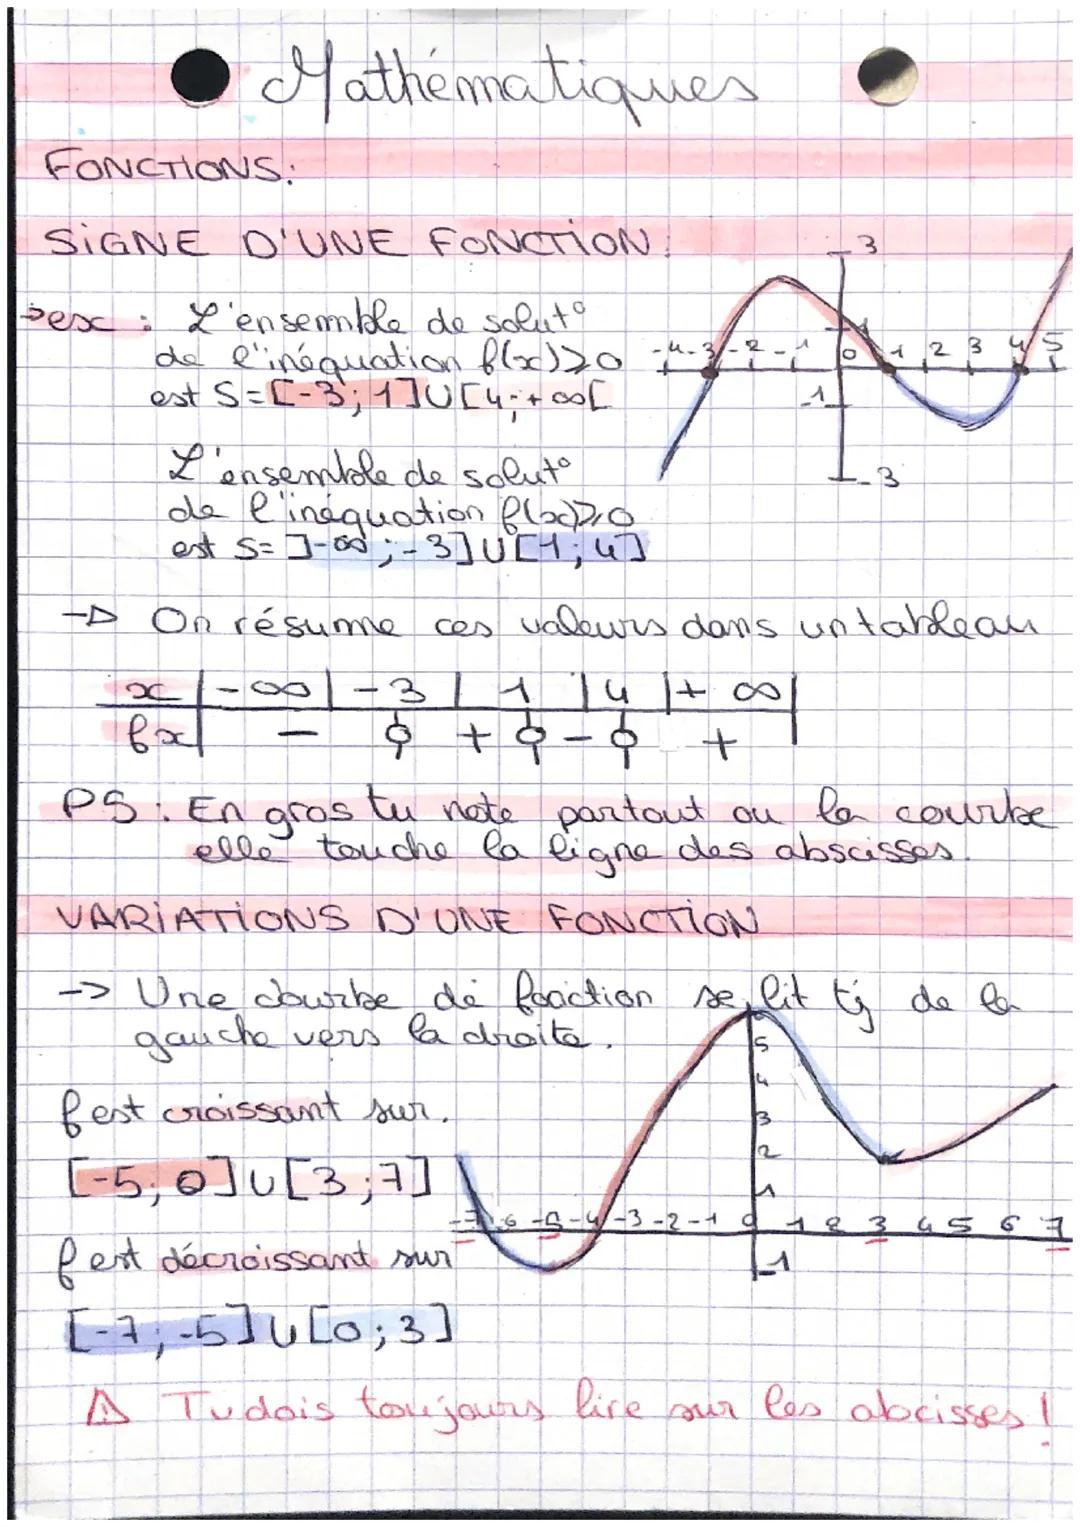 Mathématiques
FONCTIONS:
SIGNE D'UNE FONCTION:
→ex : L'ensemble de solut°
de l'inéquation f(x)⩾0
est S=[-3; 1]U[4;+∞[
3
-4 -3 -2 -1 0 1 2 3 4 5
1
-1
-3
L'ensemble de solut°
de l'inéquation f(x)⩾0
est S= ]-∞ ; -3]U[1; 4]
→ On résume ces valeurs dans un tableau
x | -∞ | -3 | 1 | 4 | + ∞ |
fx | - 0 + 0 - 0 + |
PS : En gros tu note partout ou la courbe
elle touche la ligne des abscisses.
VARIATIONS D'UNE FONCTION
-> Une courbe de fonction se lit tjs de la
gauche vers la droite.
f est croissant sur.
[-5; 0]U[3;7]
f est décroissant sur
[-7; -5]U[0; 3]
5
4
3
2
1
-7 -6 -5 -4 -3 -2 -1 0 1 2 3 4 5 6 7
-1
⚠ Tu dois toujours lire sur les abcisses !